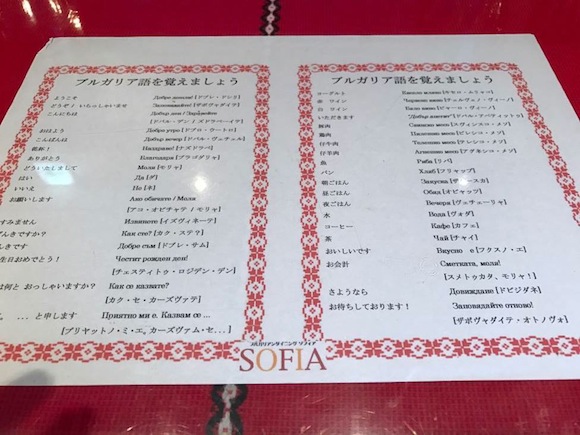 ブルガリア語を覚えましょう
ようこそ Добре дошли! [ドブレ・ドシリ]
どうぞ / いらっしゃいませ Заповядайте! [ザポヴャダイテ]
こんにちは Добър ден! / Здравейте
[ドバル・デン / ズドラヴーイテ]
おはよう Добро утро [ドブロ・ウートロ]
こんばんは Добър вечер [ドバル・ヴェチェル]
乾杯! Наздраве! [ナズドラベ]
ありがとう Благодаря [ブラゴダリャ]
どういたしまして Моля [モリャ]
はい Да [ダ]
いいえ Не [ネ]
お願いします Ако обичате / Моля
[アコ・オビチャテ / モリャ]
すみません Извинете [イズヴィネーテ]
んきですか? Как сте? [カク・ステ?]
んきです Добре съм [ドブレ・サム]
生日おめでとう! Честит рожден ден!
[チェスティトゥ・ロジデン・デン]
は何と おっしゃいますか? Как се казвате?
[カク・セ・カーズヴァテ]
、... と申します Приятно ми е. Казвам се ...
[プリヤットノ・ミ・エ。カーズヴァム・セ...]
ブルガリア語を覚えましょう
ヨーグルト Кисело мляко [キセロ・ムリャコ]
赤 ワイン Червено вино [チェルヴェノ・ヴィーノ]
白 ワイン Бяло вино [ビャーロ・ヴィーノ]
いただきます "Добър апетит" [ドバル・アペティット]
豚肉 Свинско месо [スヴィンスコ・メソ]
鶏肉 Пилешко месо [ピレシコ・メソ]
仔牛肉 Телешко месо [テレシコ・メソ]
仔羊肉 Агнешко месо [アグネシコ・メソ]
魚 Риба [リバ]
パン Хляб [フリャップ]
朝ごはん Закуска
昼ごはん Обяд [オビャッド]
夜ごはん Вечеря [ヴェチェーリャ]
水 Вода [ヴォダ]
コーヒー Кафе [カフェ]
茶 Чай [チャイ]
おいしいです Вкусно е [フクスノ・エ]
お会計 Сметката, моля!
[スメトゥカタ、モリャ!]
さようなら Довиждане [ドビジダネ]
お待ちしております! Заповядайте отново!
[ザポヴャダイテ・オトノヴォ]
ブルガリアンダイニング ソフィア
SOFIA